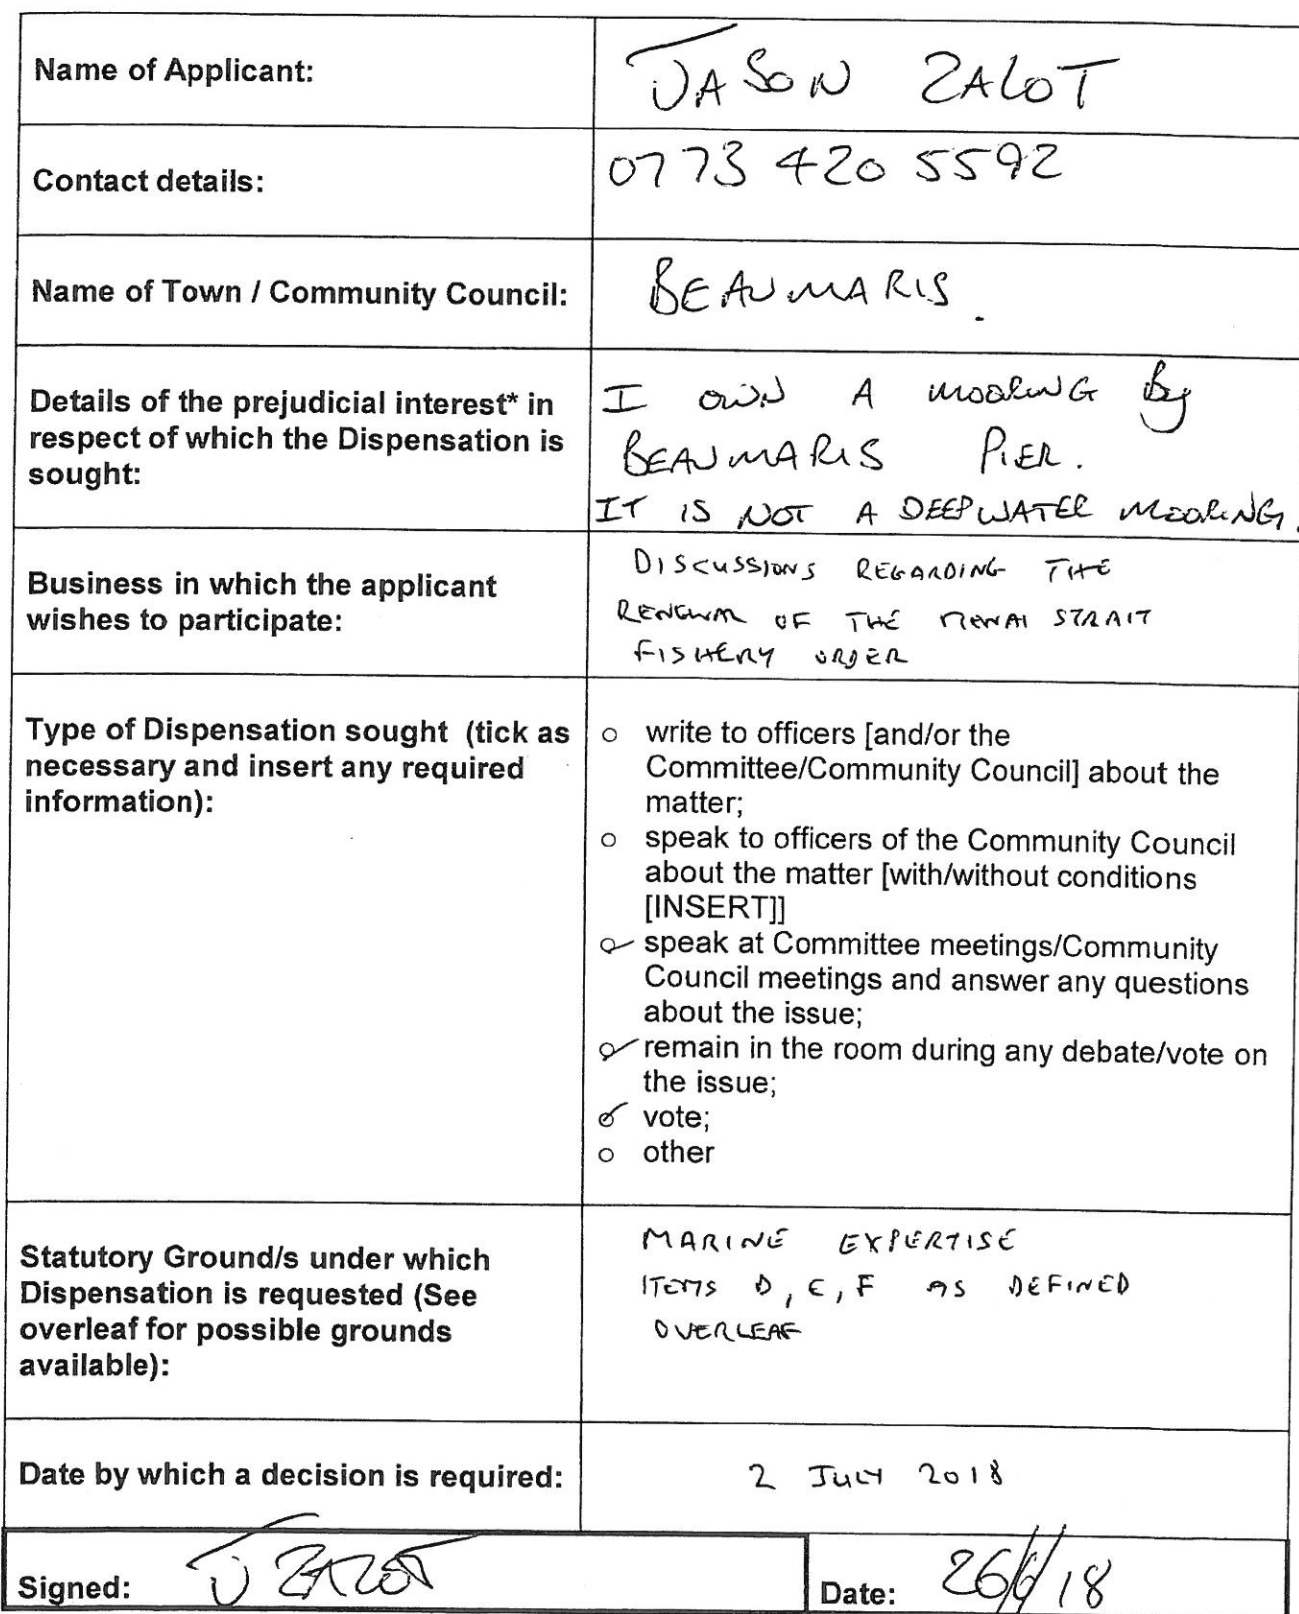 Name of Applicant:
JASON ZALOT
Contact details:
0773 420 5592
Name of Town / Community Council:
BEAUMARIS.
Details of the prejudicial interest* in
respect of which the Dispensation is
sought:
I OWN A MOORING By
BEAUMARIS PIER.
IT IS NOT A DEEPWATER MOORING.
Business in which the applicant
wishes to participate:
DISCUSSIONS REGARDING THE
RENEWAL OF THE MENAI STRAIT
FISHERY ORDER
Type of Dispensation sought (tick as
necessary and insert any required
information):
○ write to officers [and/or the
Committee/Community Council] about the
matter;
○ speak to officers of the Community Council
about the matter [with/without conditions
[INSERT]]
○ speak at Committee meetings/Community
Council meetings and answer any questions
about the issue;
○ remain in the room during any debate/vote on
the issue;
○ vote;
○ other
Statutory Ground/s under which
Dispensation is requested (See
overleaf for possible grounds
available):
MARINE EXPERTISE
ITEMS D, E, F AS DEFINED
OVERLEAF
Date by which a decision is required:
2 JULY 2018
Signed: J ZALOT
Date: 26/6/18